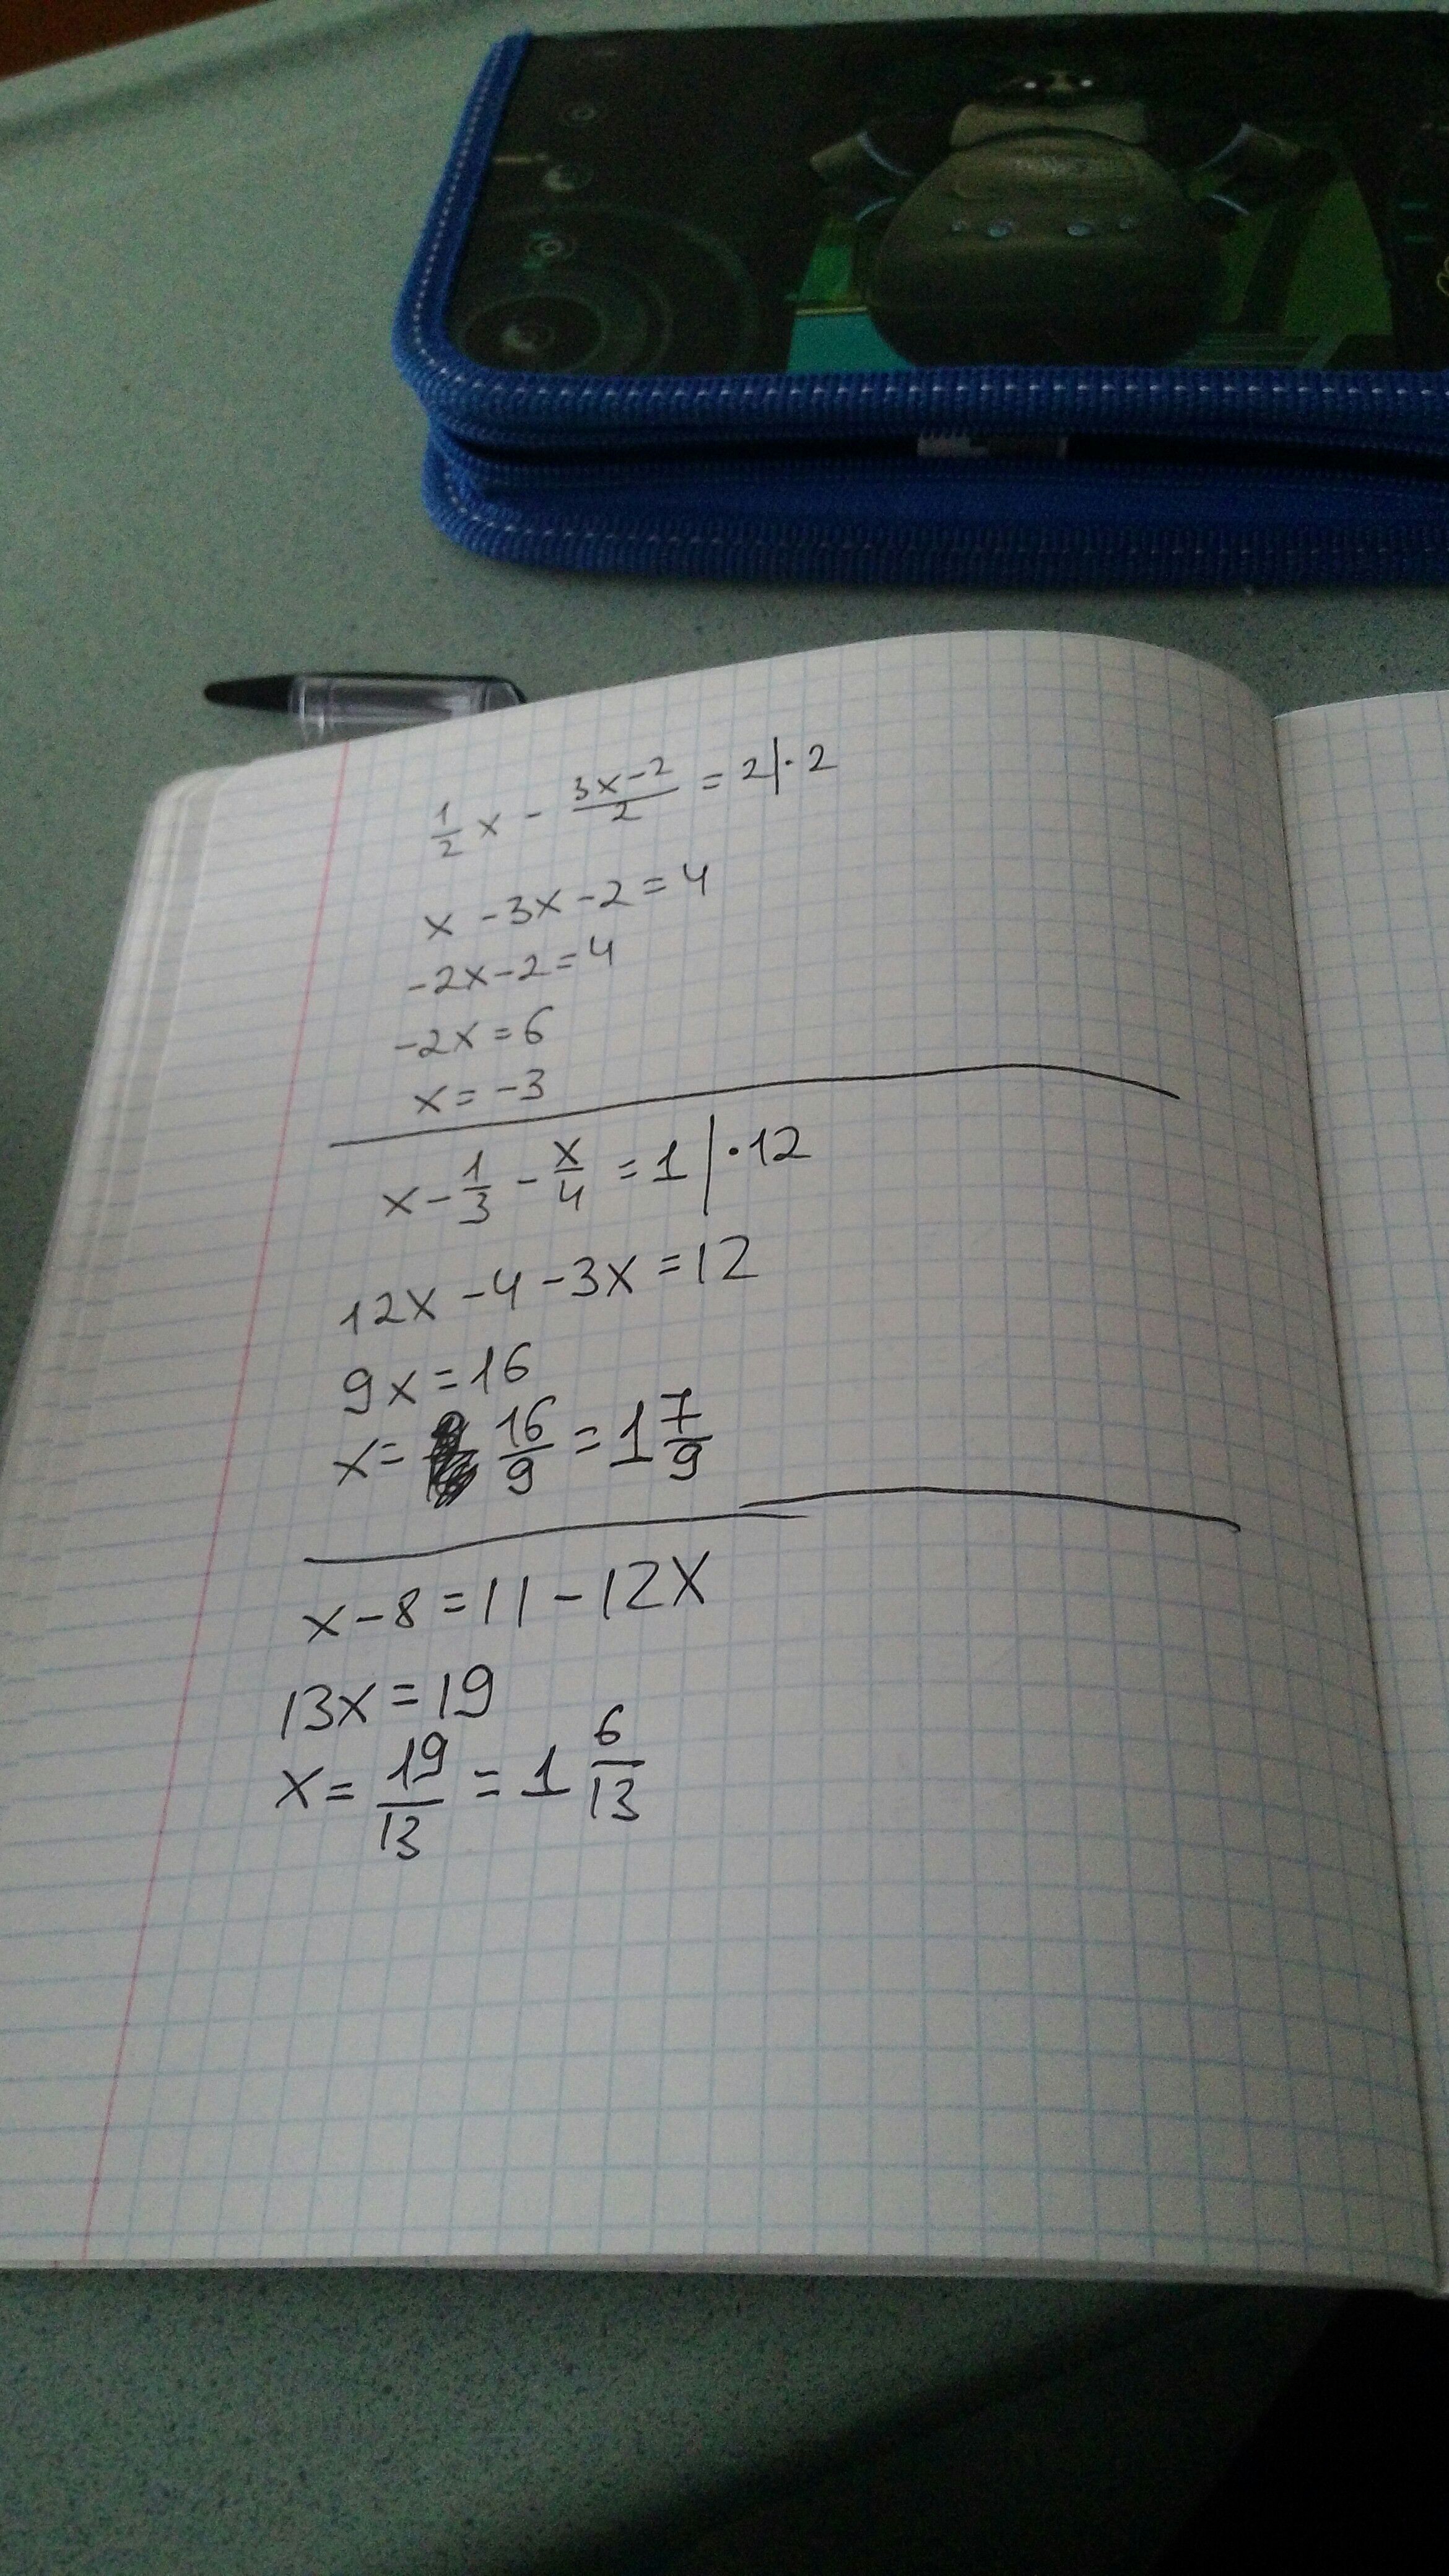 1/2 x - (3x-2)/2 = 2 |·2
x - 3x - 2 = 4
-2x - 2 = 4
-2x = 6
x = -3
x - 1/3 - x/4 = 1 |·12
12x - 4 - 3x = 12
9x = 16
x = 16/9 = 1 7/9
x - 8 = 11 - 12x
13x = 19
x = 19/13 = 1 6/13